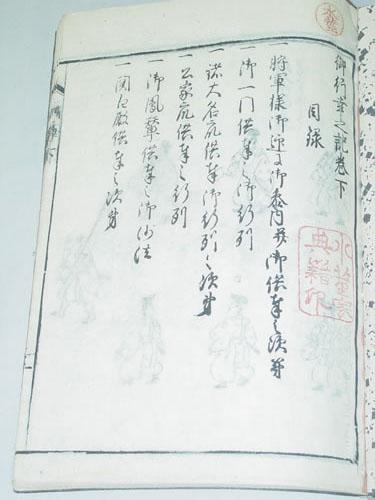 御行幸之記巻下
目録
一将軍様御迎に御参内并御供奉之次第
一御一門供奉之御行列
一諸大名衆供奉御行列之次第
一公家衆供奉之行列
一御鳳輦供奉之御沙汰
一関白殿供奉之次第
典籍印